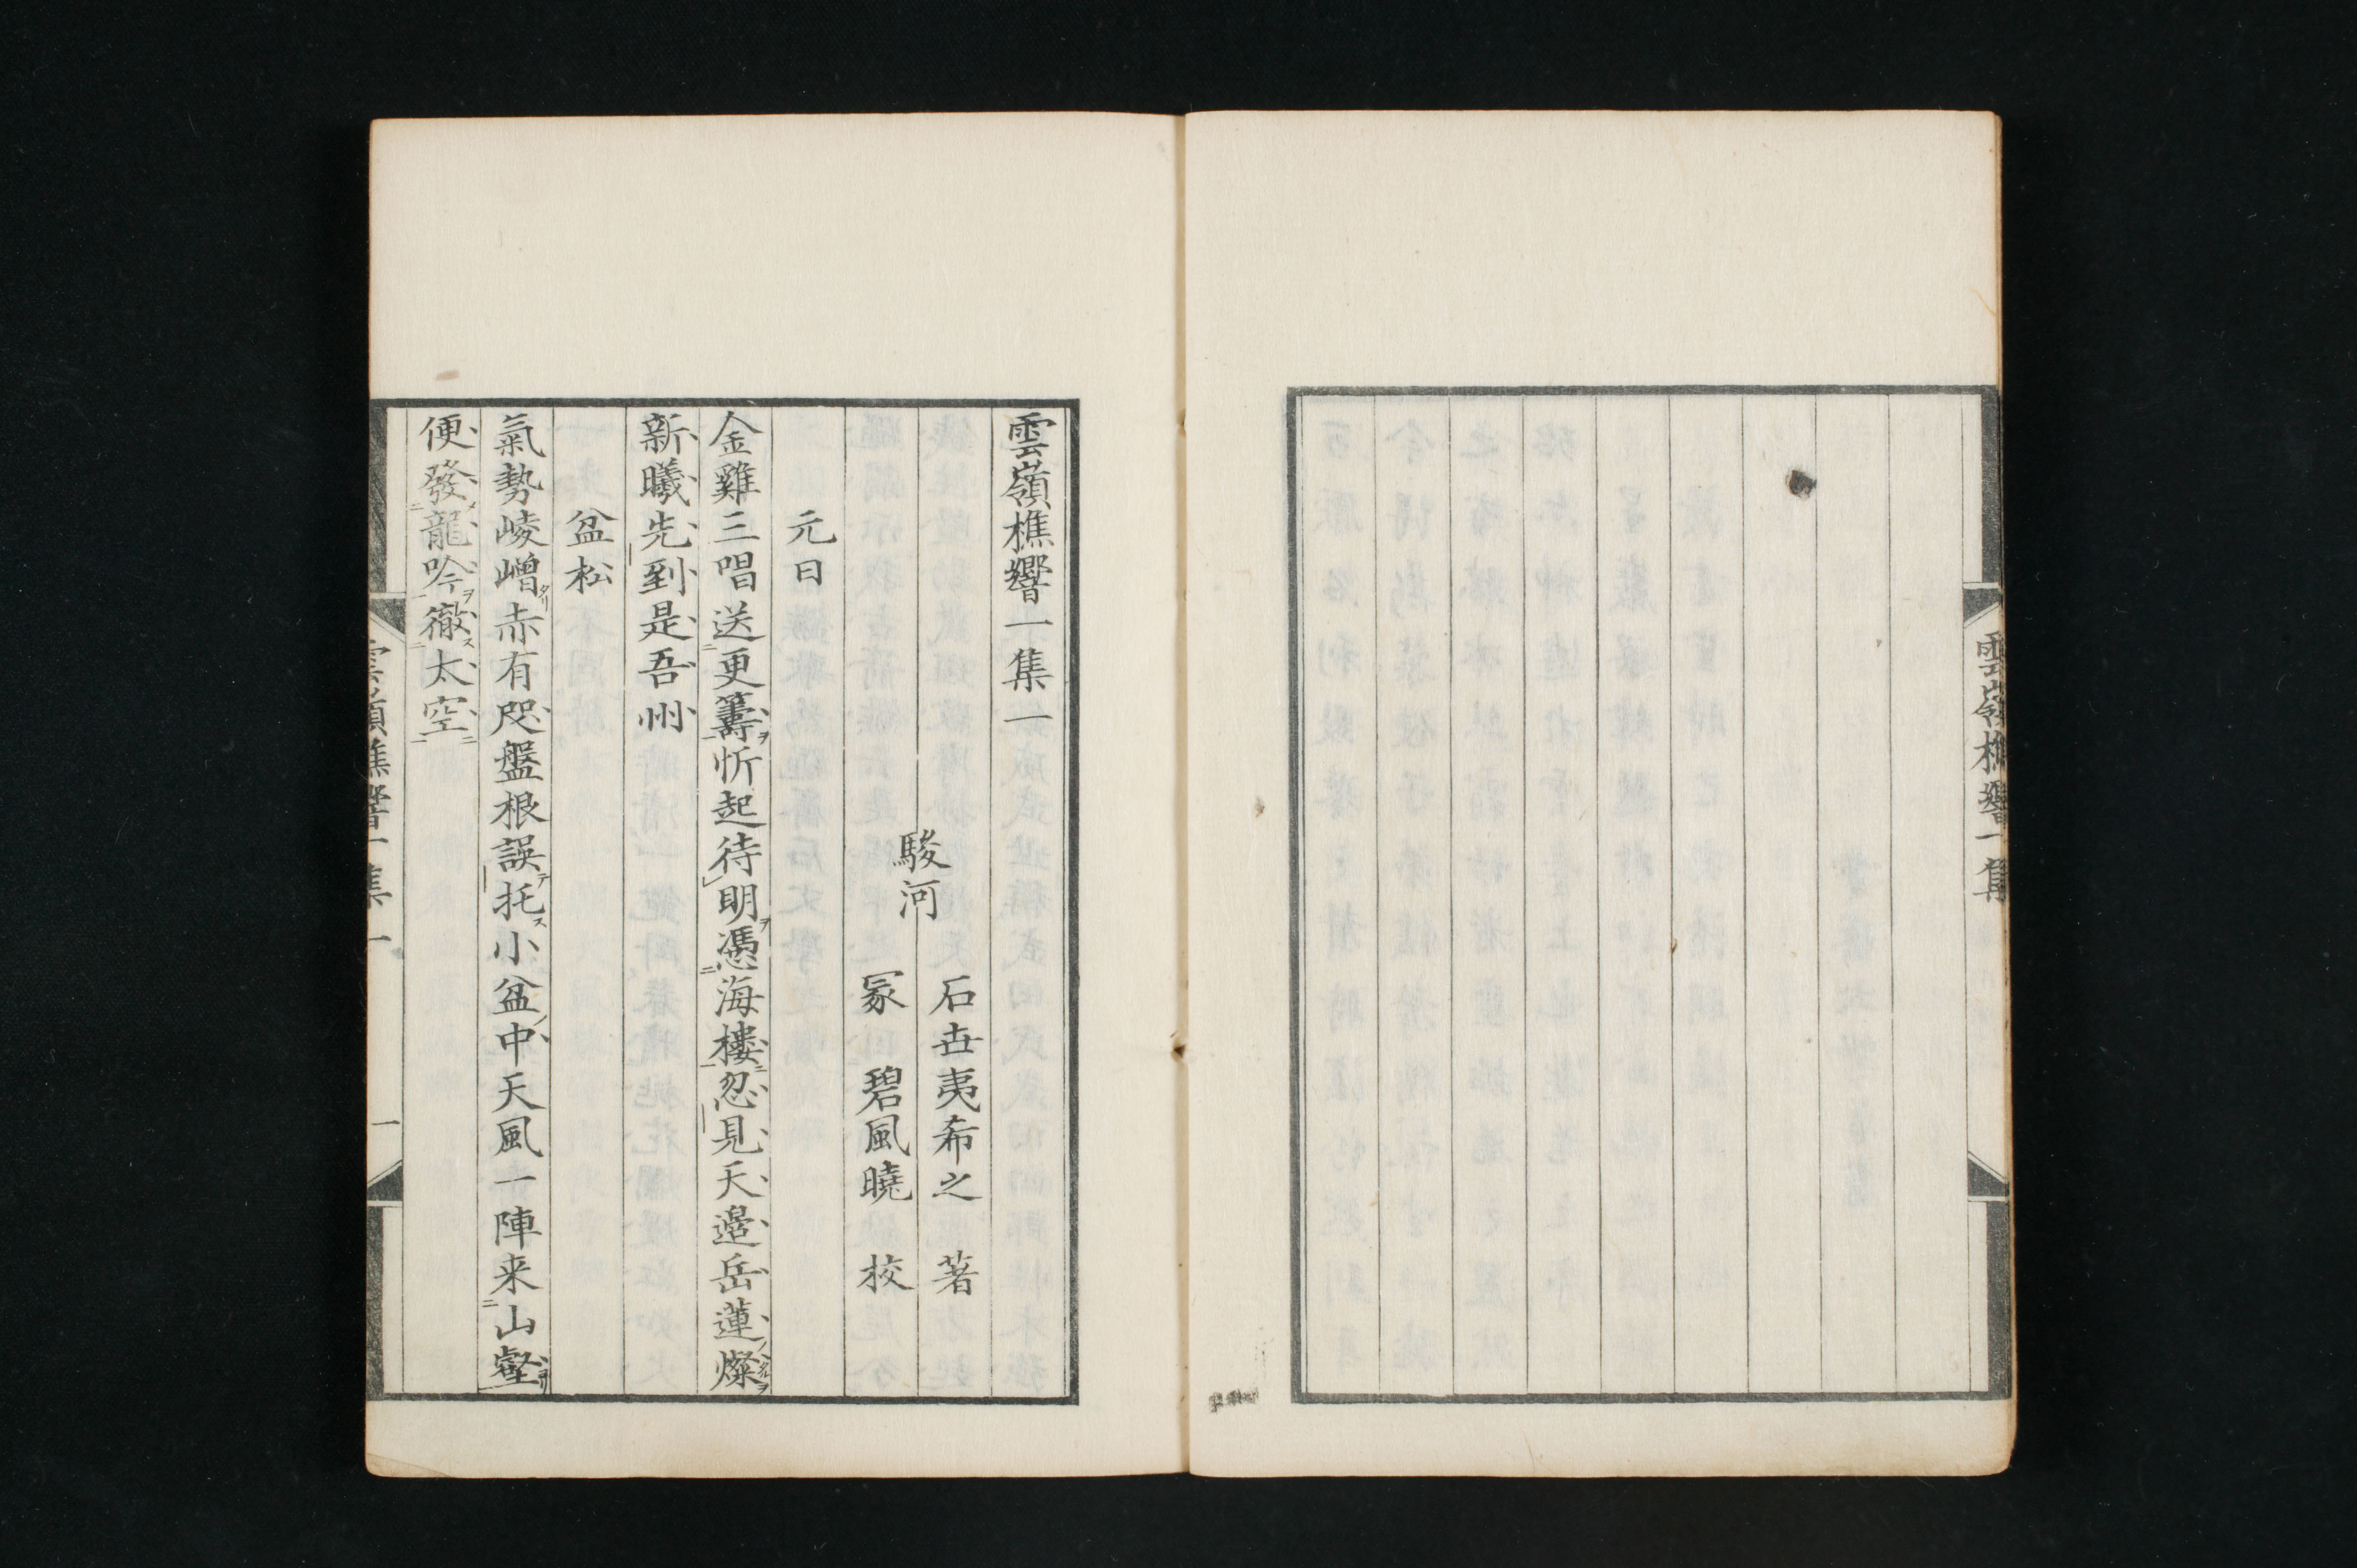 雲嶺樵響一集
雲嶺樵響一集一
駿河
石丗夷希之 著
冢 碧風曉 校
元日
金雞三唱送更籌忻起待明憑海樓忽見天邉岳蓮燦
新曦先到是吾州
盆松
氣勢崚嶒赤有咫盤根誤托小盆中天風一陣来山壑
便發龍吟徹太空
雲嶺樵響一集 一
一